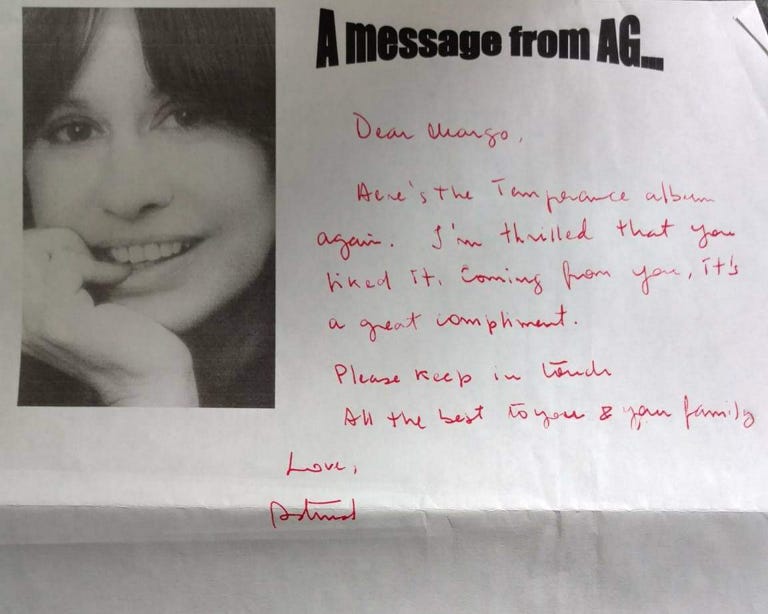 A message from AG...
Dear Margo,
Here's the Temperance album
again. I'm thrilled that you
liked it. Coming from you, it's
a great compliment.
Please keep in touch
All the best to you & your family
Love,
Astrud